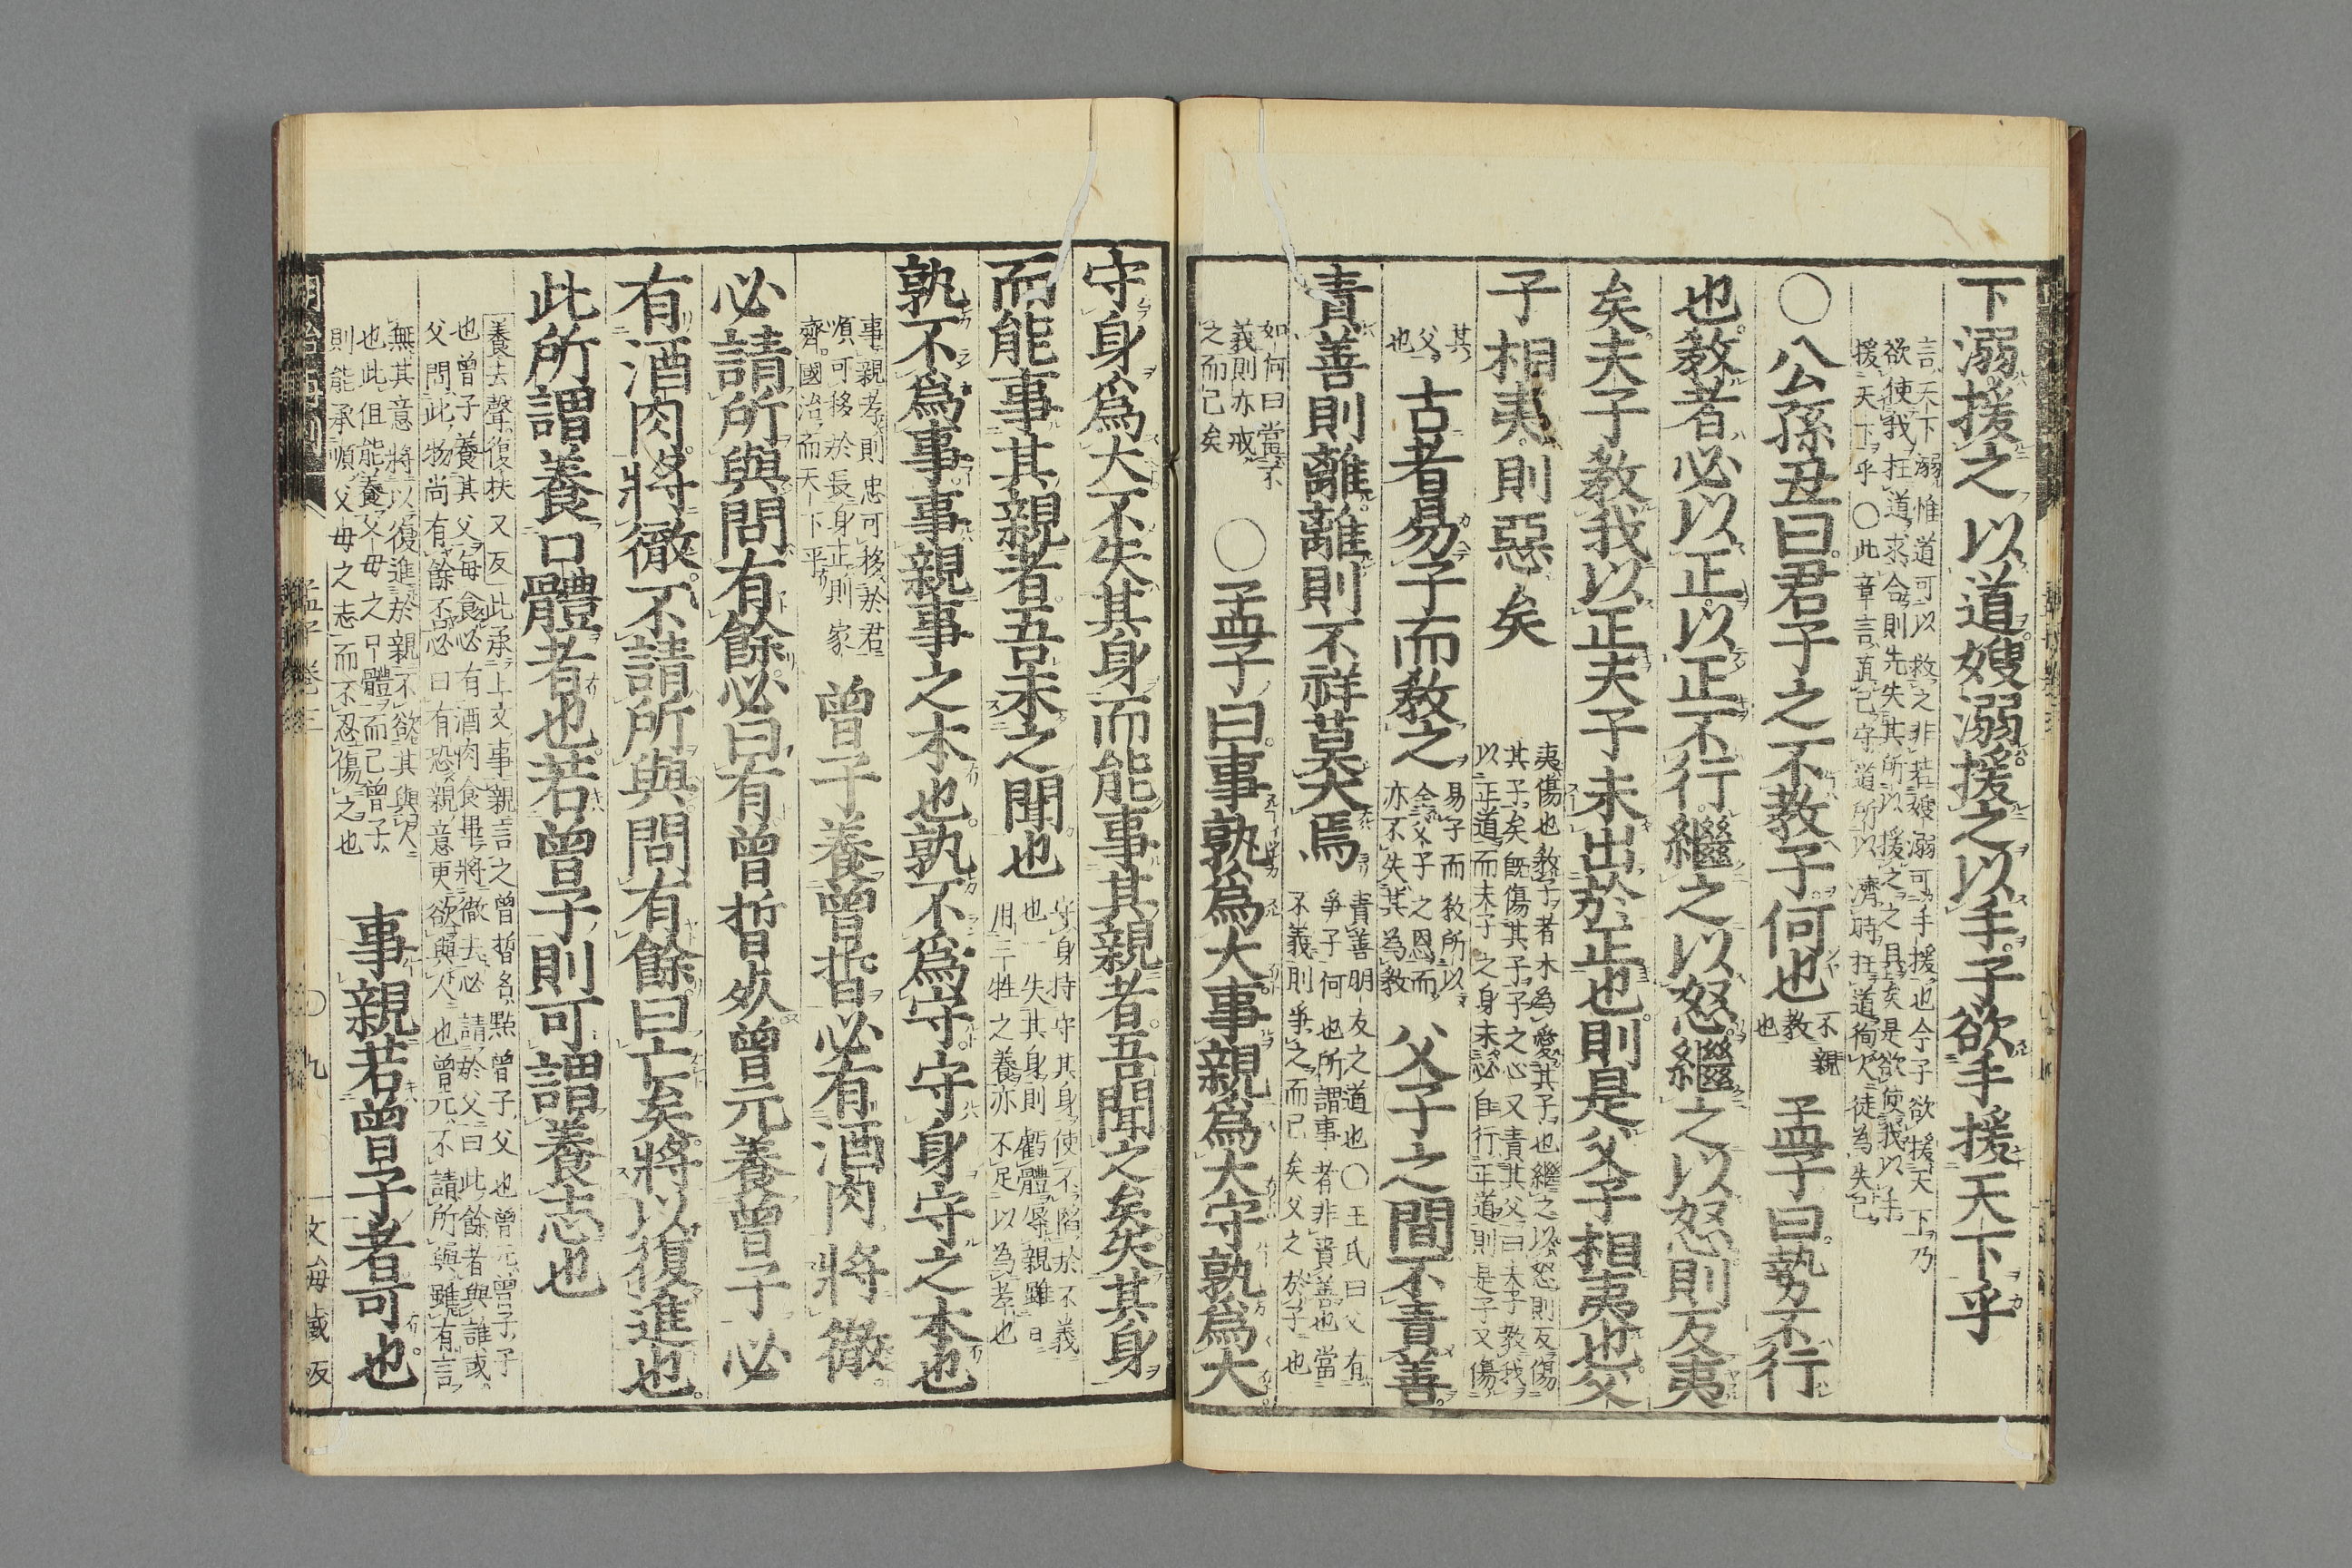 下溺援之以道嫂溺援之以手子欲手援天下乎
言天下溺惟道可以救之非若嫂溺可手援也今子欲援天下乃
欲使我枉道求合則先失其所以援之之具矣是欲使我以手
援天下乎〇此章言直己守道所以濟時枉道徇人徒為失己
〇公孫丑曰君子之不教子何也
不親
教
也
孟子曰勢不行
也教者必以正以正不行繼之以怒繼之以怒則反夷
矣夫子教我以正夫子未出於正也則是父子相夷也父
子相夷則惡矣
夷傷也教子者本為愛其子也繼之以怒則反傷
其子矣既傷其子子之心又責其父曰夫子教我
以正道而夫子之身未必自行正道則是子又傷
其
父
也
古者易子而教之
易子而教所以
全父子之恩而
亦不失其為教
父子之間不責善
責善則離離則不祥莫大焉
責善朋友之道也〇王氏曰父有
爭子何也所謂事者非責善也當
不義則爭之而已矣父之於子也
如何曰當不
義則亦戒
之而已矣
〇孟子曰事孰為大事親為大守孰為大
守身為大不失其身而能事其親者吾聞之矣失其身
而能事其親者吾未之聞也
守身持守其身使不陷於不義
也一失其身則虧體辱親雖日
用三牲之養亦不足以為孝也
孰不為事事親事之本也孰不為守守身守之本也
事親孝則忠可移於君
順可移於長身正則家
齊國治而天下平
曾子養曾皙必有酒肉將徹
必請所與問有餘必曰有曾皙死曾元養曾子必
有酒肉將徹不請所與問有餘曰亡矣將以復進也
此所謂養口體者也若曾子則可謂養志也
養去聲復扶又反此承上文事親言之曾皙名點曾子父也曾元曾子子
也曾子養其父每食必有酒肉食畢將徹去必請於父曰此餘者與誰或
父問此物尚有餘否必曰有恐親意更欲與人也曾元不請所與雖有言
無其意將以復進於親不欲其與人
也此但能養父母之口體而已曾子
則能承順父母之志而不忍傷之也
事親若曾子者可也
孟子卷三
〇九
文海藏版